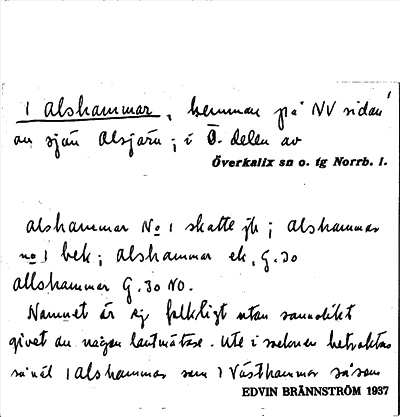 1 Alshammar, hemman på NV sidan
av sjön Alsjärv; i Ö. delen av
Överkalix sn o. tg Norrb. l.
Alshammar No 1 skatte jb; Alshammar
no 1 bek; Alshammar ek, G. 30
Allshammar G. 30 NO.
Namnet är ej folkligt utan sannolikt
givet av någon lantmätare. Ute i socknen betraktas
såväl 1 Alshammar som 1 Västhammar såsom
EDVIN BRÄNNSTRÖM 1937